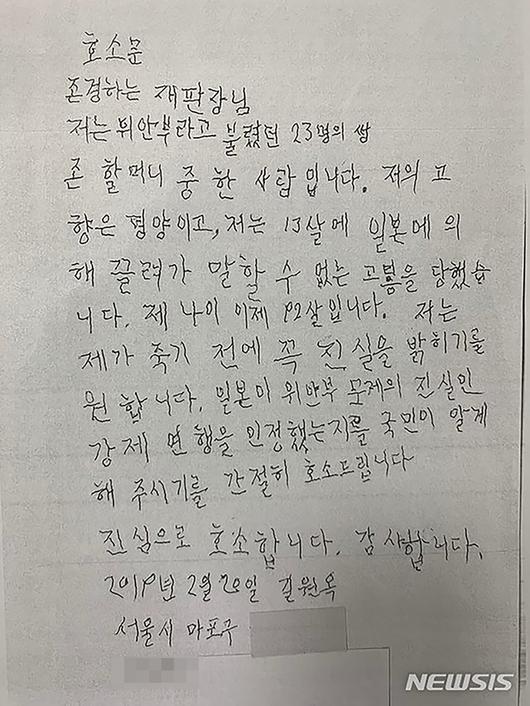 호소문
존경하는 재판장님
저는 위안부라고 불렸던 23명의 쌍
존 할머니 중 한 사람 입니다. 저의 고
향은 평양이고, 저는 13살에 일본에 의
해 끌려가 말할 수 없는 고통을 당했습
니다. 제 나이 이제 92살입니다. 저는
제가 죽기 전에 꼭 진실을 밝히기를
원합니다. 일본이 위안부 문제의 진실인
강제 연행을 인정했는지를 국민이 알게
해 주시기를 간절히 호소드립니다
진심으로 호소합니다. 감사합니다.
2019년 2월 20일 길원옥
서울시 마포구
NEWSIS